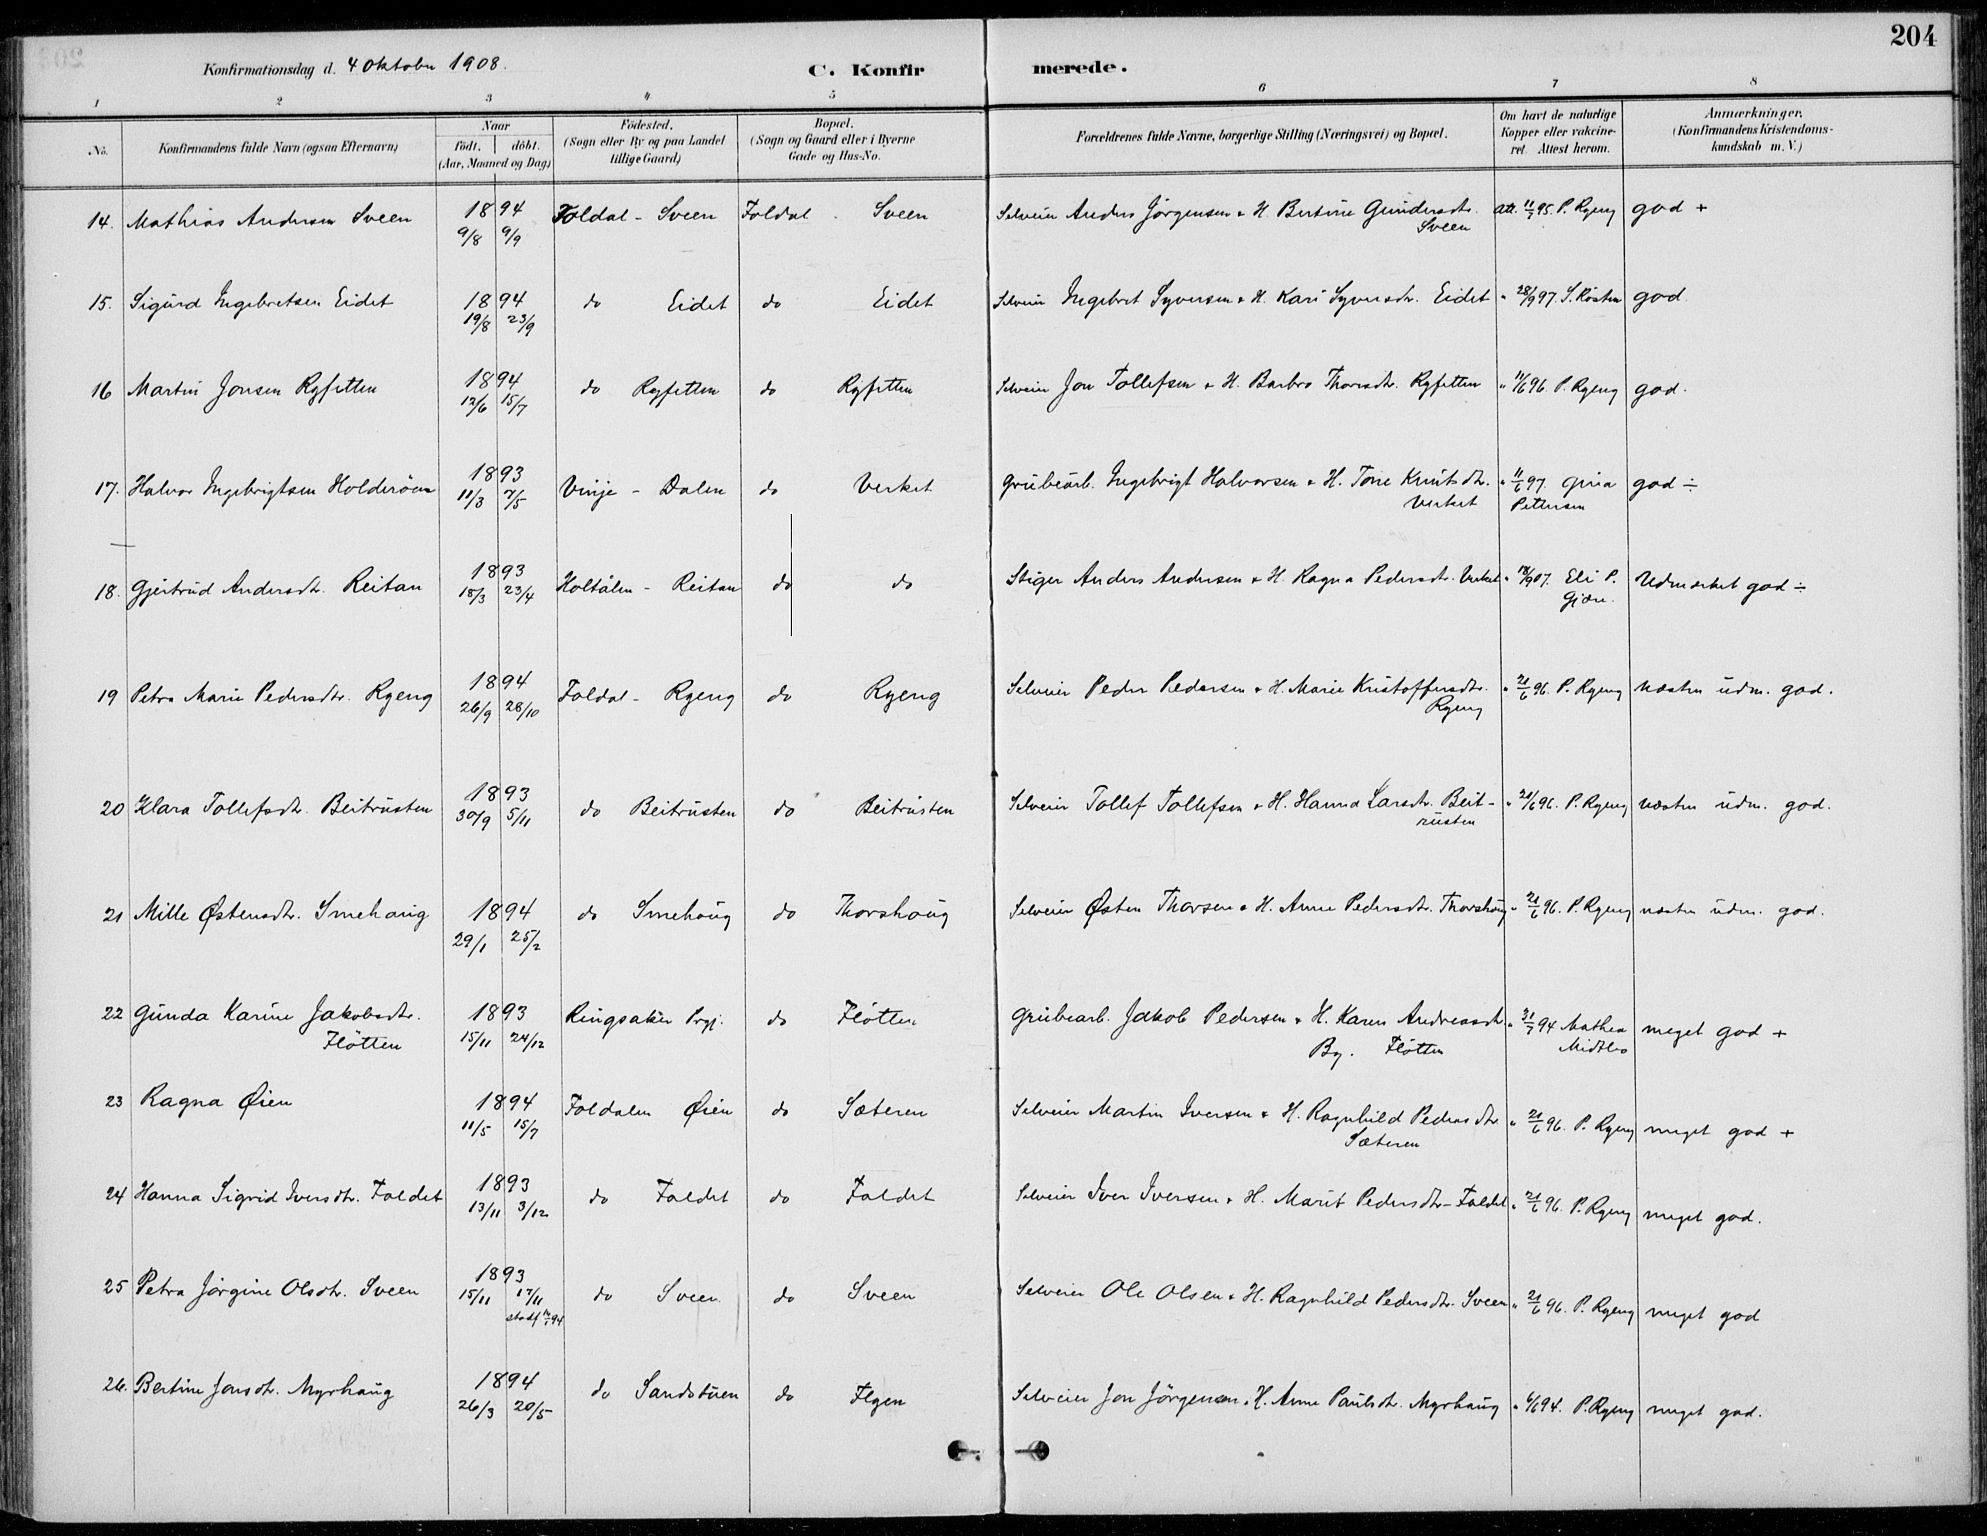 204
Konfirmationsdag d. 4 Oktober 1908.
C. Konfirmerede.
1 2 3 4 5 6 7 8
No.
Konfirmandens fulde Navn (ogsaa Efternavn)
Naar
födt. döbt.
(Aar, Maaned og Dag)
Födested.
(Sogn eller By og paa Landet
tillige Gaard)
Bopæl.
(Sogn og Gaard eller i Byerne
Gade og Hus-No.
Forældrenes fulde Navne, borgerlige Stilling (Næringsvei) og Bopæl.
Om havt de naturlige
Kopper eller vakcine-
ret. Attest herom.
Anmærkninger.
(Konfirmandens Kristendoms-
kundskab m. V.)
14. Mathias Andersen Sveen 1894 9/8 9/9 Foldal - Sveen Foldal - Sveen Selveier Anders Jörgensen & H. Bertine Gundersdtr. Sveen Att. 11/7 95. P. Ryeng god +
15. Sigurd Ingebretsen Eidet 1894 19/8 23/9 do Eidet do Eidet Selveier Ingebret Syversen & H. Kari Syversdtr. Eidet " 28/9 97. S. Rosten god.
16 Martin Jonsen Ryfetten 1894 12/6 15/7 do Ryfetten do Ryfetten Selveier Jon Tollefsen & H. Barbro Thorsdtr. Ryfetten " 11/6 96. P. Ryeng god.
17. Halvor Ingebrigtsen Holderöen 1893 11/3 7/5 Vinje - Dalen do Verket Grubearb. Ingebrigt Halvorsen & H. Tone Knutsdtr. Verket " 11/6 97. Gina Pettersen god ÷
18. Gjertrud Andersdtr. Reitan 1893 18/3 23/4 Holtålen - Reitan do do Stiger Anders Andersen & H. Ragna Pedersdtr. Verket " 07. Eli P. Gjære. Udmærket god ÷
19 Petra Marie Pedersdtr. Ryeng 1894 26/9 28/10 Foldal - Ryeng do Ryeng Selveier Peder Pedersen & H. Marie Kristoffersdtr. Ryeng " 21/6 96. P. Ryeng næsten udm. god.
20 Klara Tollefsdtr. Beitrusten 1893 30/9 5/11 do Beitrusten do Beitrusten Selveier Tollef Tollefsen & H. Hanna Larsdtr. Beit-rusten " 21/6 96. P. Ryeng næsten udm. god.
21 Mille Østensdtr. Smehaug 1894 29/1 25/2 do Smehoug do Thorshoug Selveier Østen Thorsen & H. Anne Pedersdtr. Thorshoug " 21/6 96. P. Ryeng næsten udm. god.
22 Gunda Karine Jakobsdtr. Flötten 1893 15/11 24/12 Ringsaker Prgj. do Flötten Grubearb. Jakob Pedersen & H. Karen Andreasdtr. By. Flötten " 31/7 94 Mathea Midtbo meget god +
23 Ragna Øien 1894 11/5 15/7 Foldalen Øien do Sæteren Selveier Martin Iversen & H. Ragnhild Pedersdtr Sæteren " 21/6 96. P. Ryeng meget god +
24 Hanna Sigrid Iversdtr. Foldet 1893 13/11 3/12 do Foldet do Foldet Selveier Iver Iversen & H. Marit Pedersdtr - Foldet " 21/6 96. P. Ryeng meget god.
25 Petra Jörgine Olsdtr. Sveen 1893 15/11 17/11 94 do Sveen do Sveen Selveier Ole Olsen & H. Ragnhild Pedersdtr. Sveen " 21/6 96. P. Ryeng meget god
26. Bertine Jonsdtr. Myrhaug 1894 26/3 20/5 do Sandstuen do Elgen Selveier Jon Jörgensen & H. Anne Paulsdtr. Myrhaug " 6/6 94. P. Ryeng meget god.